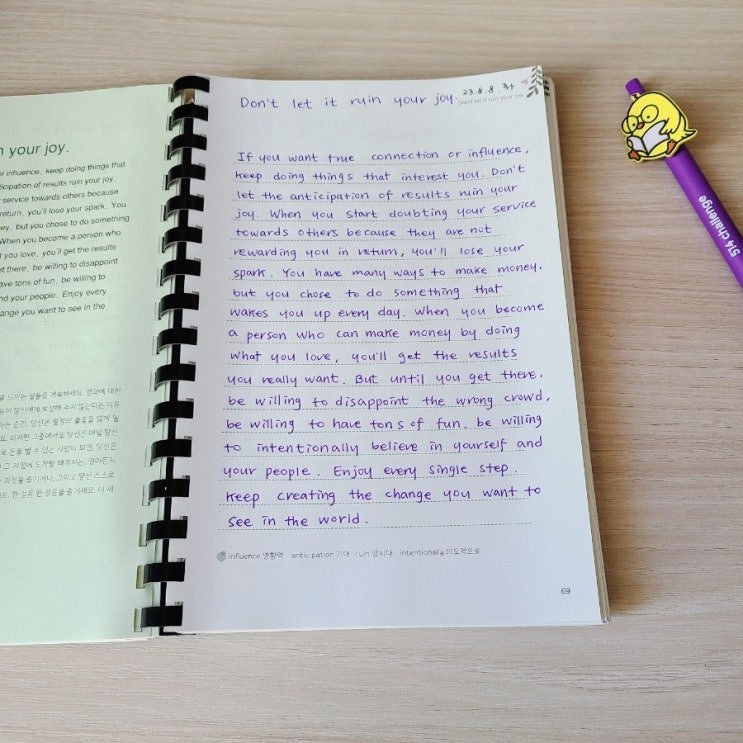 your joy.
influence, keep doing things that
of results ruin your joy.
service towards others because
return, you'll lose your spark. You
but you chose to do something
When you become a person who
you love, you'll get the results
there, be willing to disappoint
tons of fun, be willing to
your people. Enjoy every
you want to see in the
느끼는 일들을 계속하세요. 결과에 대한
당신에게 보상해 주지 않는다는 이유
순간, 당신은 열정의 불꽃을 잃게 될
하지만 그중에서도 당신은 매일 당신
돈을 벌 수 있는 사람이 되면, 당신은
그 지점에 도착할 때까지는,
과정을 즐기거나, 그리고 당신 스스로
한 걸음 한 걸음을 즐기세요. 이 세
Don't let it ruin your joy.
23.8.8. 화
Don't let it ruin your joy.
If you want true connection or influence,
keep doing things that interest you. Don't
let the anticipation of results ruin your
joy. When you start doubting your service
towards others because they are not
rewarding you in return, you'll lose your
spark. You have many ways to make money.
but you chose to do something that
wakes you up every day. When you become
a person who can make money by doing
what you love, you'll get the results
you really want. But until you get there.
be willing to disappoint the wrong crowd,
be willing to have tons of fun, be willing
to intentionally believe in yourself and
your people. Enjoy every single step.
keep creating the change you want to
see in the world.
influence 영향력 anticipation 기대 ruin 망치다 intentionally 의도적으로
69
514 challenge